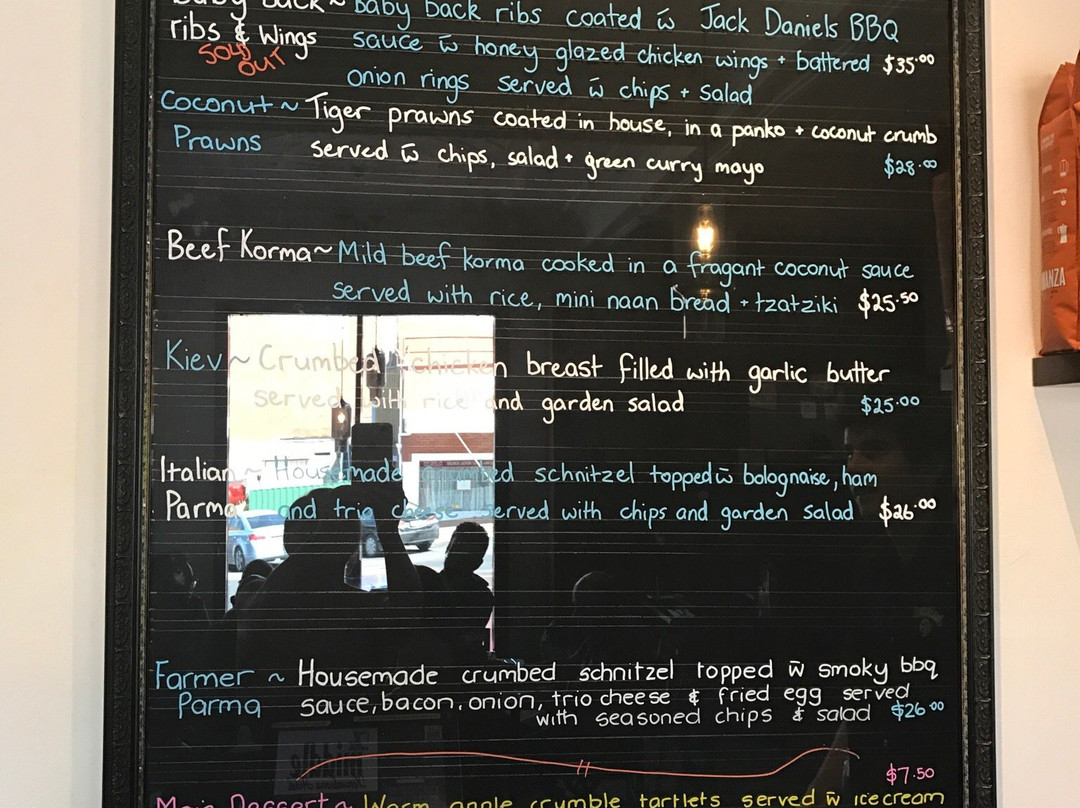 Baby back ~ Baby back ribs coated w̄ Jack Daniels BBQ
ribs & Wings sauce w̄ honey glazed chicken wings + battered $35.00
SOLD OUT
onion rings served w̄ chips + Salad
Coconut ~ Tiger prawns coated in house, in a panko + coconut crumb
Prawns served w̄ chips, salad + green curry mayo $28.00
Beef Korma ~ Mild beef korma cooked in a fragant coconut sauce
served with rice, mini naan bread + tzatziki $25.50
Kiev ~ Crumbed chicken breast filled with garlic butter
served with rice and garden salad $25.00
Italian ~ Housemade schnitzel topped w̄ bolognaise, ham
Parma and trio cheese served with chips and garden salad $26.00
Farmer ~ Housemade crumbed schnitzel topped w̄ smoky bbq
Parma sauce, bacon, onion, trio cheese & fried egg served
with seasoned chips & salad $26.00
$7.50
Dessert ~ Warm apple crumble tartlets served w̄ icecream